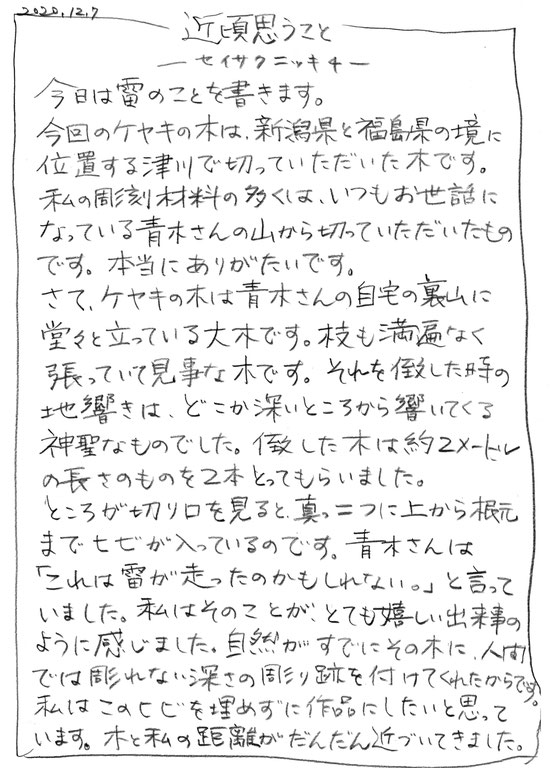 2020.12.7
近頃思うこと
—セイサクニッキ4—
今日は雷のことを書きます。
今回のケヤキの木は、新潟県と福島県の境に
位置する津川で切っていただいた木です。
私の彫刻材料の多くは、いつもお世話に
なっている青木さんの山から切っていただいたもの
です。本当にありがたいです。
さて、ケヤキの木は青木さんの自宅の裏山に
堂々と立っている大木です。枝も満遍なく
張っていて見事な木です。それを倒した時の
地響きは、どこか深いところから響いてくる
神聖なものでした。倒した木は約2メートル
の長さのものを2本とってもらいました。
ところが切り口を見ると、真っ二つに上から根元
までヒビが入っているのです。青木さんは
「これは雷が走ったのかもしれない。」と言って
いました。私はそのことが、とても嬉しい出来事の
ように感じました。自然がすでにその木に、人間
では彫れない深さの彫り跡を付けてくれたからです。
私はこのヒビを埋めずに作品にしたいと思って
います。木と私の距離がだんだん近づいてきました。